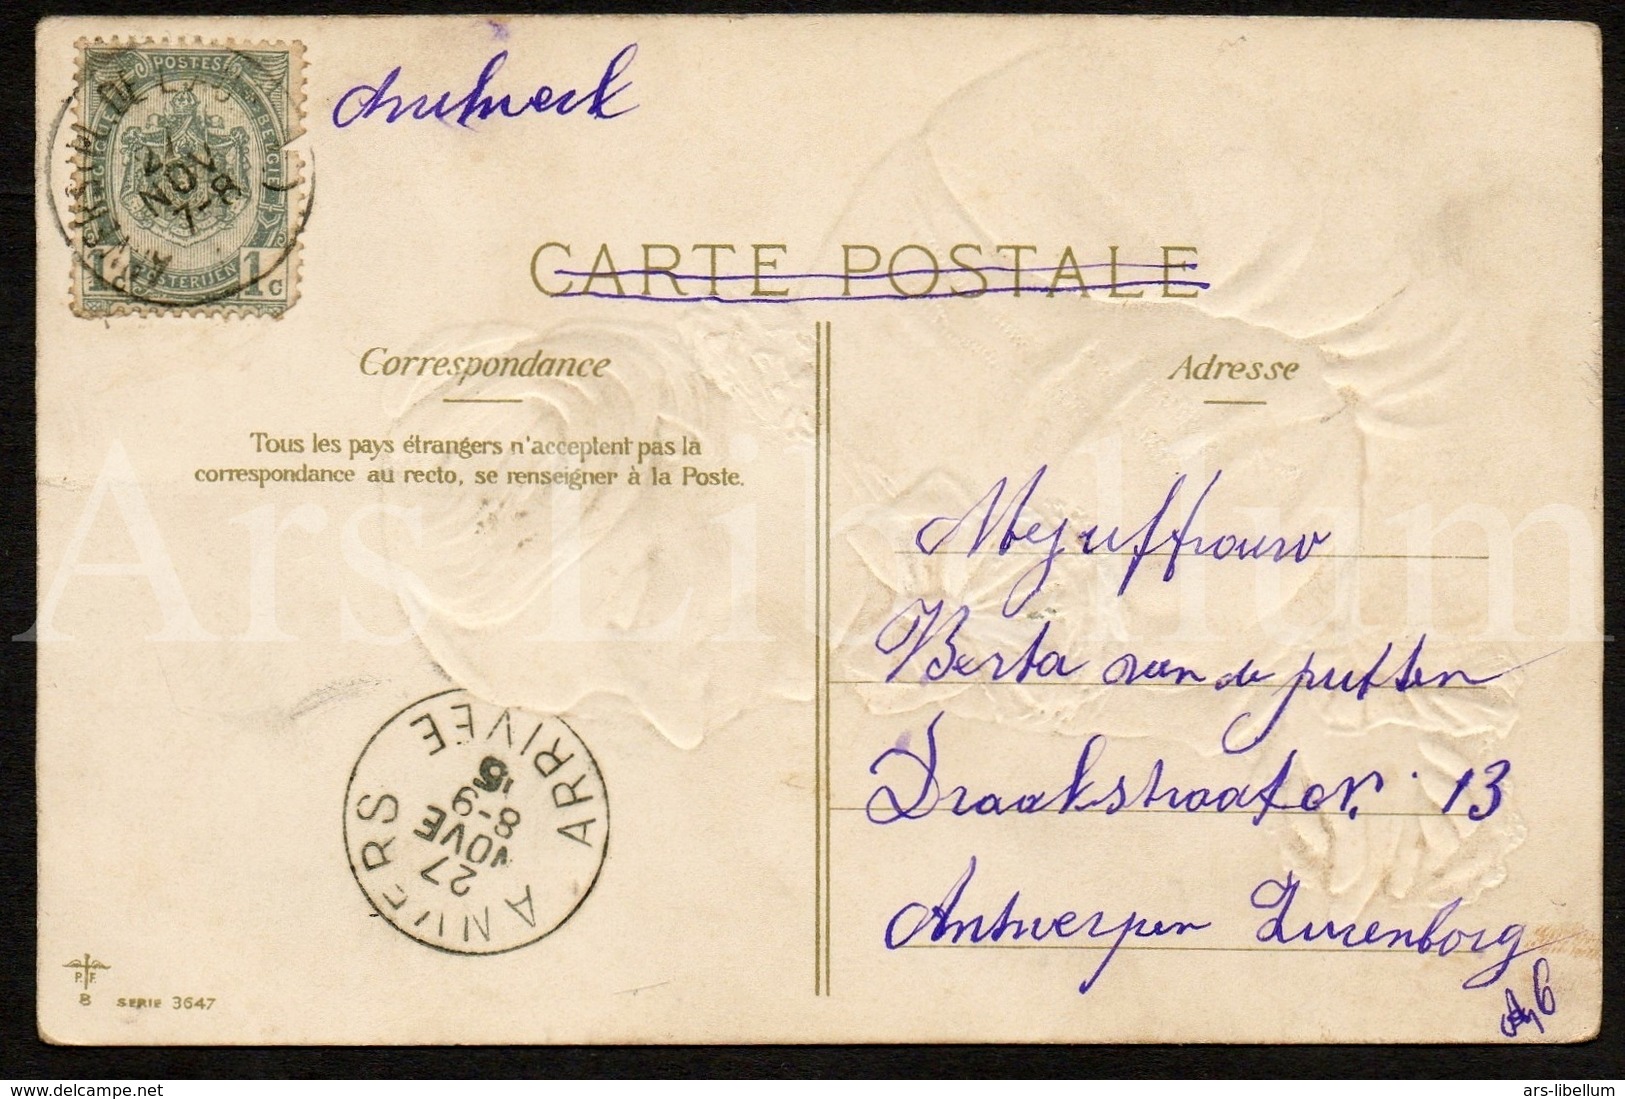 POSTES
BELGIQUE BELGIE
27
NOV
7-8
1c POSTERIJEN 1c
Drukwerk
CARTE POSTALE
Correspondance
Adresse
Tous les pays étrangers n'acceptent pas la
correspondance au recto, se renseigner à la Poste.
Mejuffrouw
Berta van de putten
Draakstraat Nr. 13
Antwerpen Zurenborg
ANVERS ARRIVÉE
27
NOVE
8-9
P. F.
8 SERIE 3647
Ars Libellum
© www.delcampe.net
ars-libellum